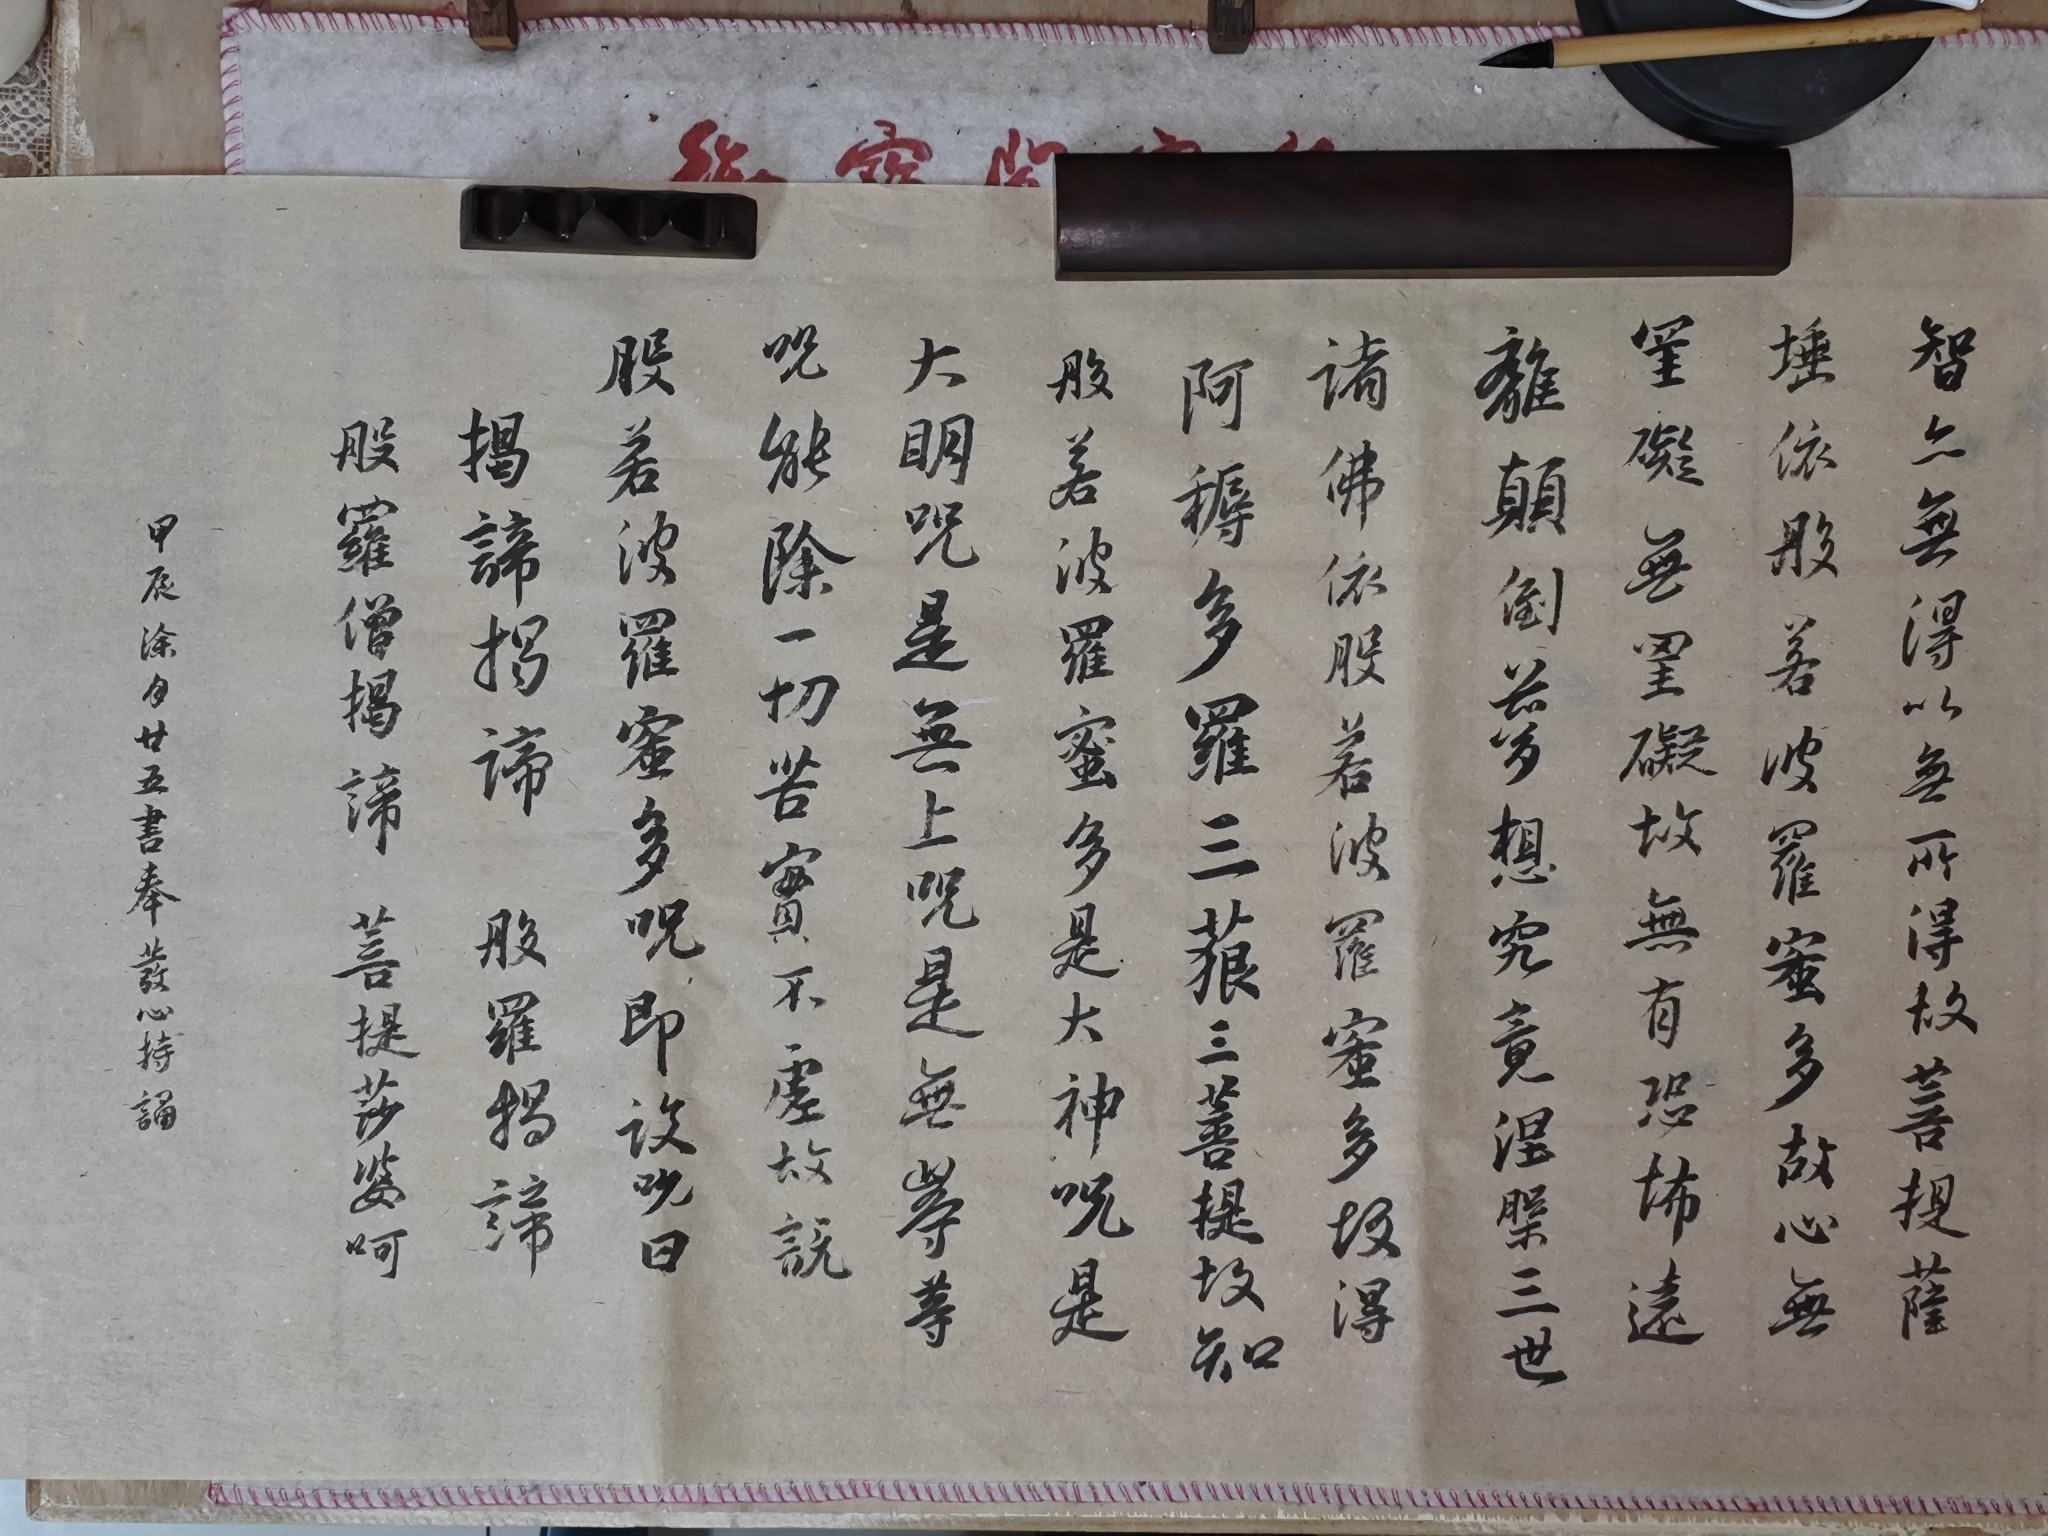 智亦無得以無所得故菩提薩
埵依般若波羅蜜多故心無
罣礙無罣礙故無有恐怖遠
離顛倒夢想究竟涅槃三世
諸佛依般若波羅蜜多故得
阿耨多羅三藐三菩提故知
般若波羅蜜多是大神咒是
大明咒是無上咒是無等等
咒能除一切苦實不虛故說
般若波羅蜜多咒即說咒曰
揭諦揭諦 般羅揭諦
般羅僧揭諦 菩提莎婆呵
甲辰涂月廿五書奉發心持誦